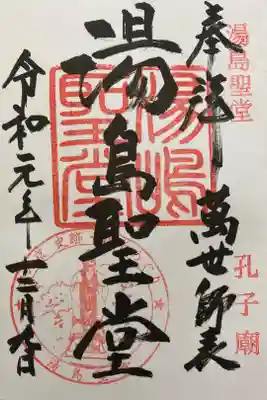 湯島聖堂
孔子廟
奉拝
萬世師表
湯島聖堂
湯島聖堂
令和元年十二月九日